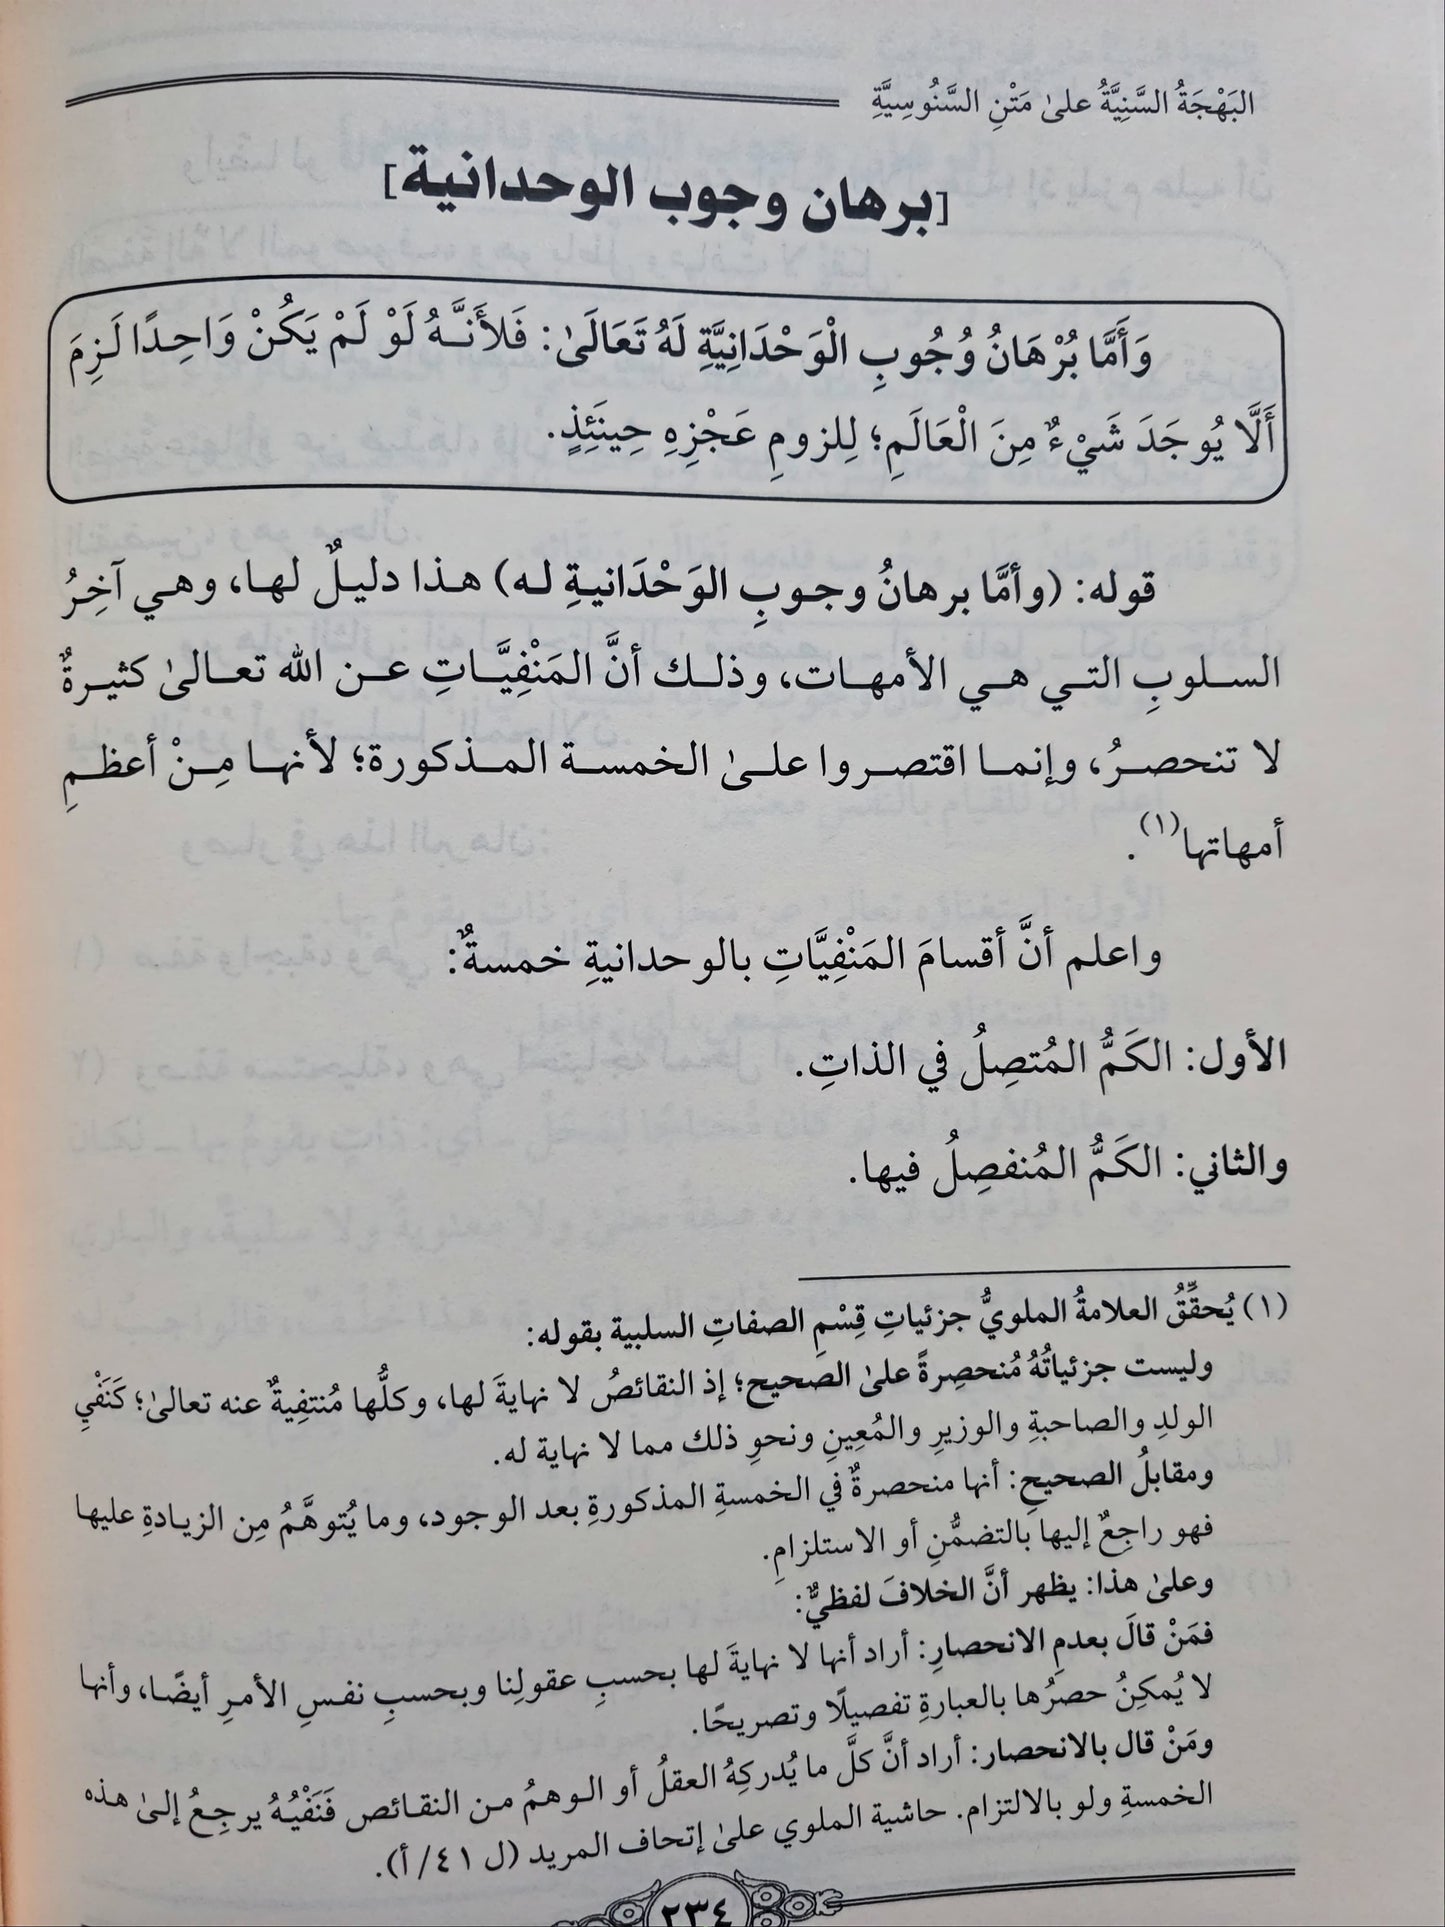 البَهْجَةُ السَّنِيَّةُ علىٰ مَتْنِ السَّنُوسِيَّةِ
[برهان وجوب الوحدانية]
وَأَمَّا بُرْهَانُ وُجُوبِ الْوَحْدَانِيَّةِ لَهُ تَعَالَىٰ: فَلأَنَّـهُ لَوْ لَمْ يَكُنْ وَاحِـدًا لَـزِمَ
أَلَّا يُوجَدَ شَيْءٌ مِنَ الْعَالَمِ؛ لِلزومِ عَجْزِهِ حِينَئِذٍ.
قوله: (وأمَّا برهانُ وجوبِ الوَحْدَانيةِ له) هذا دليلٌ لها، وهي آخِرُ
السلوبِ التي هي الأمهات، وذلك أنَّ المَنْفِيَّاتِ عن الله تعالىٰ كثيرةٌ
لا تنحصرُ، وإنما اقتصروا علىٰ الخمسة المذكورة؛ لأنها مِنْ أعظمِ
أمهاتها(١).
واعلم أنَّ أقسامَ المَنْفِيَّاتِ بالوحدانيةِ خمسةٌ:
الأول: الكَمُّ المُتصِلُ في الذاتِ.
والثاني: الكَمُّ المُنفصِلُ فيها.
(١) يُحقِّقُ العلامةُ الملويُّ جزئياتِ قِسْمِ الصفاتِ السلبية بقوله:
وليست جزئياتُهُ مُنحصِرةً علىٰ الصحيح؛ إذ النقائصُ لا نهايةَ لها، وكلُّها مُنتفِيةٌ عنه تعالىٰ؛ كَنَفْيِ
الولدِ والصاحبةِ والوزيرِ والمُعِينِ ونحوِ ذلك مما لا نهاية له.
ومقابلُ الصحيحِ: أنها منحصرةٌ في الخمسةِ المذكورةِ بعد الوجود، وما يُتوهَّمُ مِن الزيادةِ عليها
فهو راجِعٌ إليها بالتضمُّنِ أو الاستلزامِ.
وعلىٰ هذا: يظهر أنَّ الخلافَ لفظيٌّ:
فمَنْ قالَ بعدمِ الانحصارِ: أراد أنها لا نهايةَ لها بحسبِ عقولِنا وبحسبِ نفسِ الأمرِ أيضًا، وأنها
لا يُمكِنُ حصرُها بالعبارةِ تفصيلًا وتصريحًا.
ومَنْ قال بالانحصار: أراد أنَّ كلَّ ما يُدركِهُ العقلُ أو الوهمُ من النقائص فَنَفْيُهُ يرجِعُ إلىٰ هذه
الخمسةِ ولو بالالتزام. حاشية الملوي علىٰ إتحاف المريد (ل ٤١/ أ).
٢٣٤